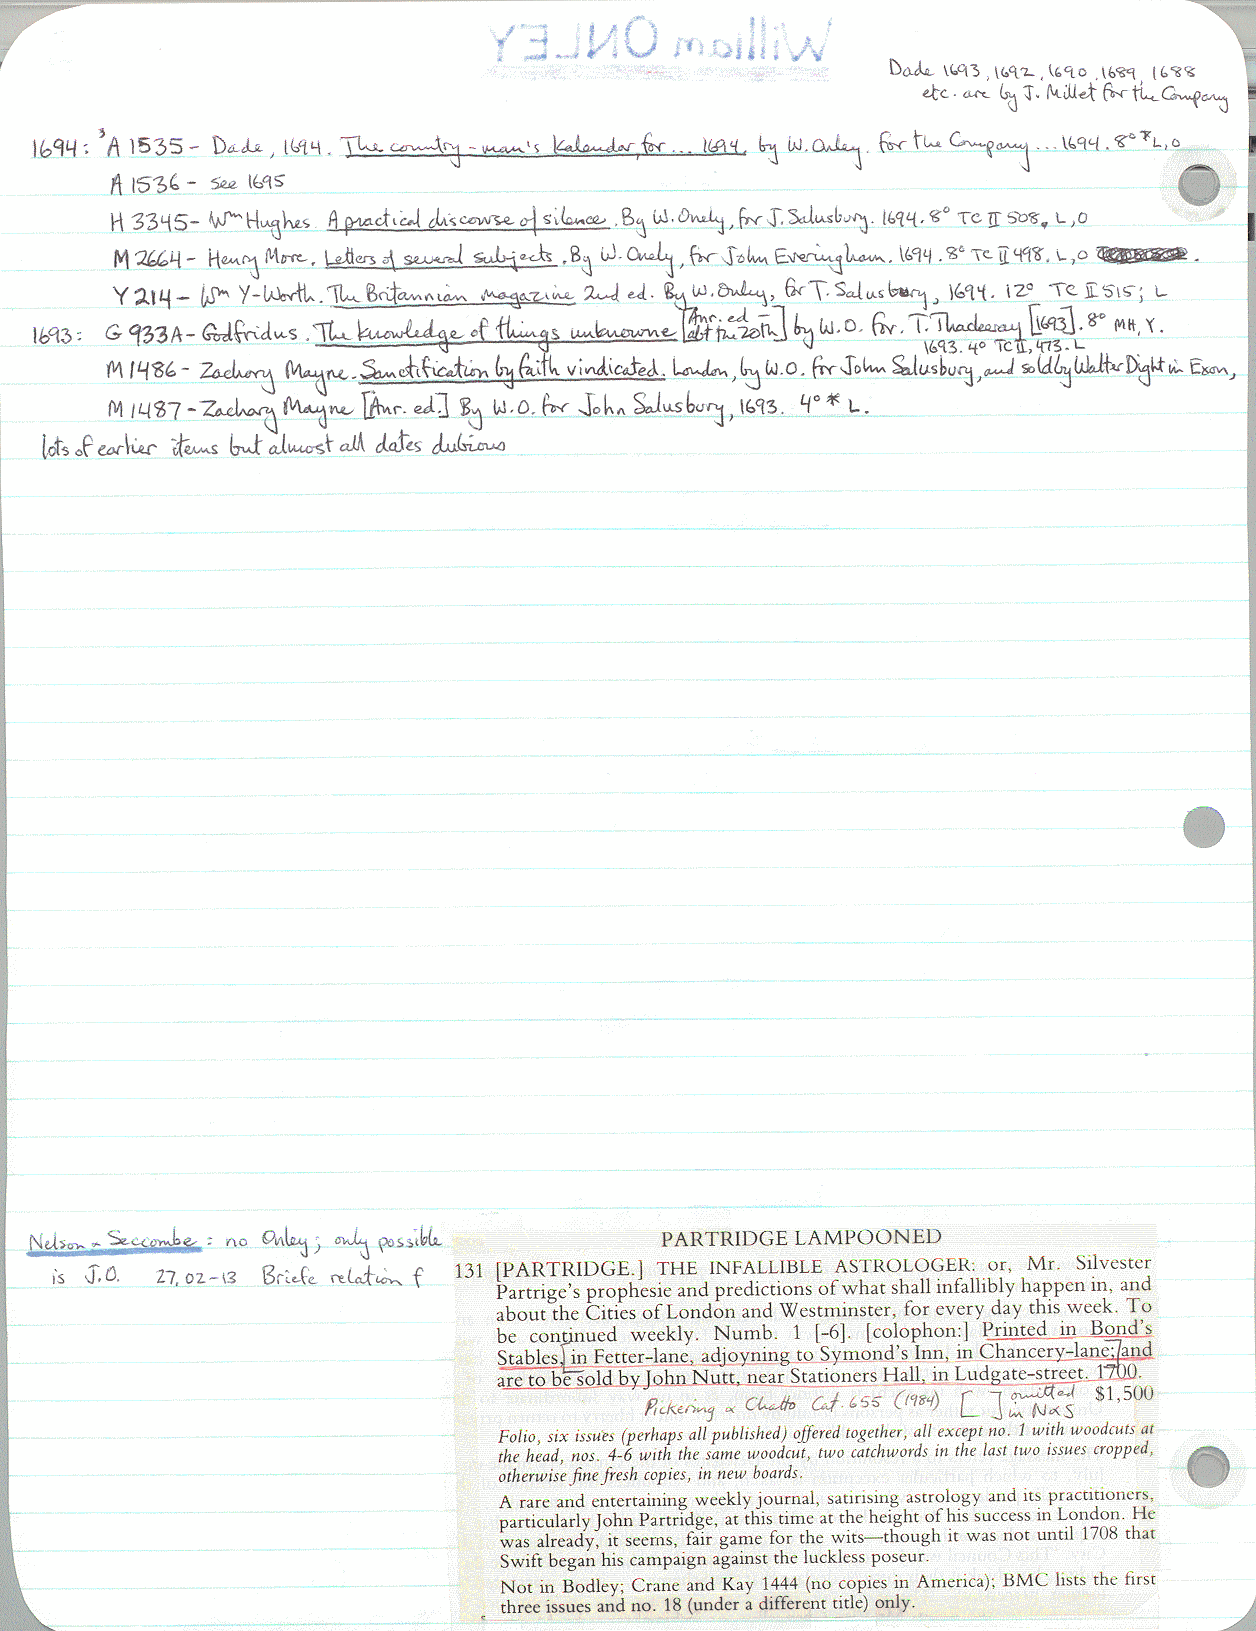 William ONLEY
Dade 1693, 1692, 1690, 1689, 1688
etc. are by J. Millet for the Company
1694: ³A 1535 - Dade, 1694. The country-man's Kalendar, for... 1694. by W. Onley. for the Company... 1694. 8° * L, O
A 1536 - see 1695
H 3345 - Wm Hughes. A practical discourse of silence. By W. Onely, for J. Salusbury. 1694. 8° TC II 508. L, O
M 2664 - Henry More. Letters of several subjects. By W. Onely, for John Everingham. 1694. 8° TC II 498. L, O
Y 214 - Wm Y-Worth. The Britannian magazine 2nd ed. By W. Onley, for T. Salusbury, 1694. 12° TC II 515; L
1693: G 933A - Godfridus. The knowledge of things unknowne [Anr. ed - abt the 20th] by W.O. for T. Thackeray [1693]. 8° MH, Y.
1693. 4° TC II, 473. L
M 1486 - Zachory Mayne. Sanctification by faith vindicated. London, by W.O. for John Salusbury, and sold by Walter Dight in Exon,
M 1487 - Zachary Mayne [Anr. ed.] By W.O. for John Salusbury, 1693. 4° * L.
lots of earlier items but almost all dates dubious
Nelson & Seccombe: no Onley; only possible
is J.O. 27,02-13 Briefe relation f
PARTRIDGE LAMPOONED
131 [PARTRIDGE.] THE INFALLIBLE ASTROLOGER: or, Mr. Silvester
Partrige's prophesie and predictions of what shall infallibly happen in, and
about the Cities of London and Westminster, for every day this week. To
be continued weekly. Numb. 1 [-6]. [colophon:] Printed in Bond's
Stables, [in Fetter-lane, adjoyning to Symond's Inn, in Chancery-lane;] and
are to be sold by John Nutt, near Stationers Hall, in Ludgate-street. 1700.
Pickering & Chatto Cat. 655 (1984) [ ] omitted in N&S $1,500
Folio, six issues (perhaps all published) offered together, all except no. 1 with woodcuts at
the head, nos. 4-6 with the same woodcut, two catchwords in the last two issues cropped,
otherwise fine fresh copies, in new boards.
A rare and entertaining weekly journal, satirising astrology and its practitioners,
particularly John Partridge, at this time at the height of his success in London. He
was already, it seems, fair game for the wits—though it was not until 1708 that
Swift began his campaign against the luckless poseur.
Not in Bodley; Crane and Kay 1444 (no copies in America); BMC lists the first
three issues and no. 18 (under a different title) only.